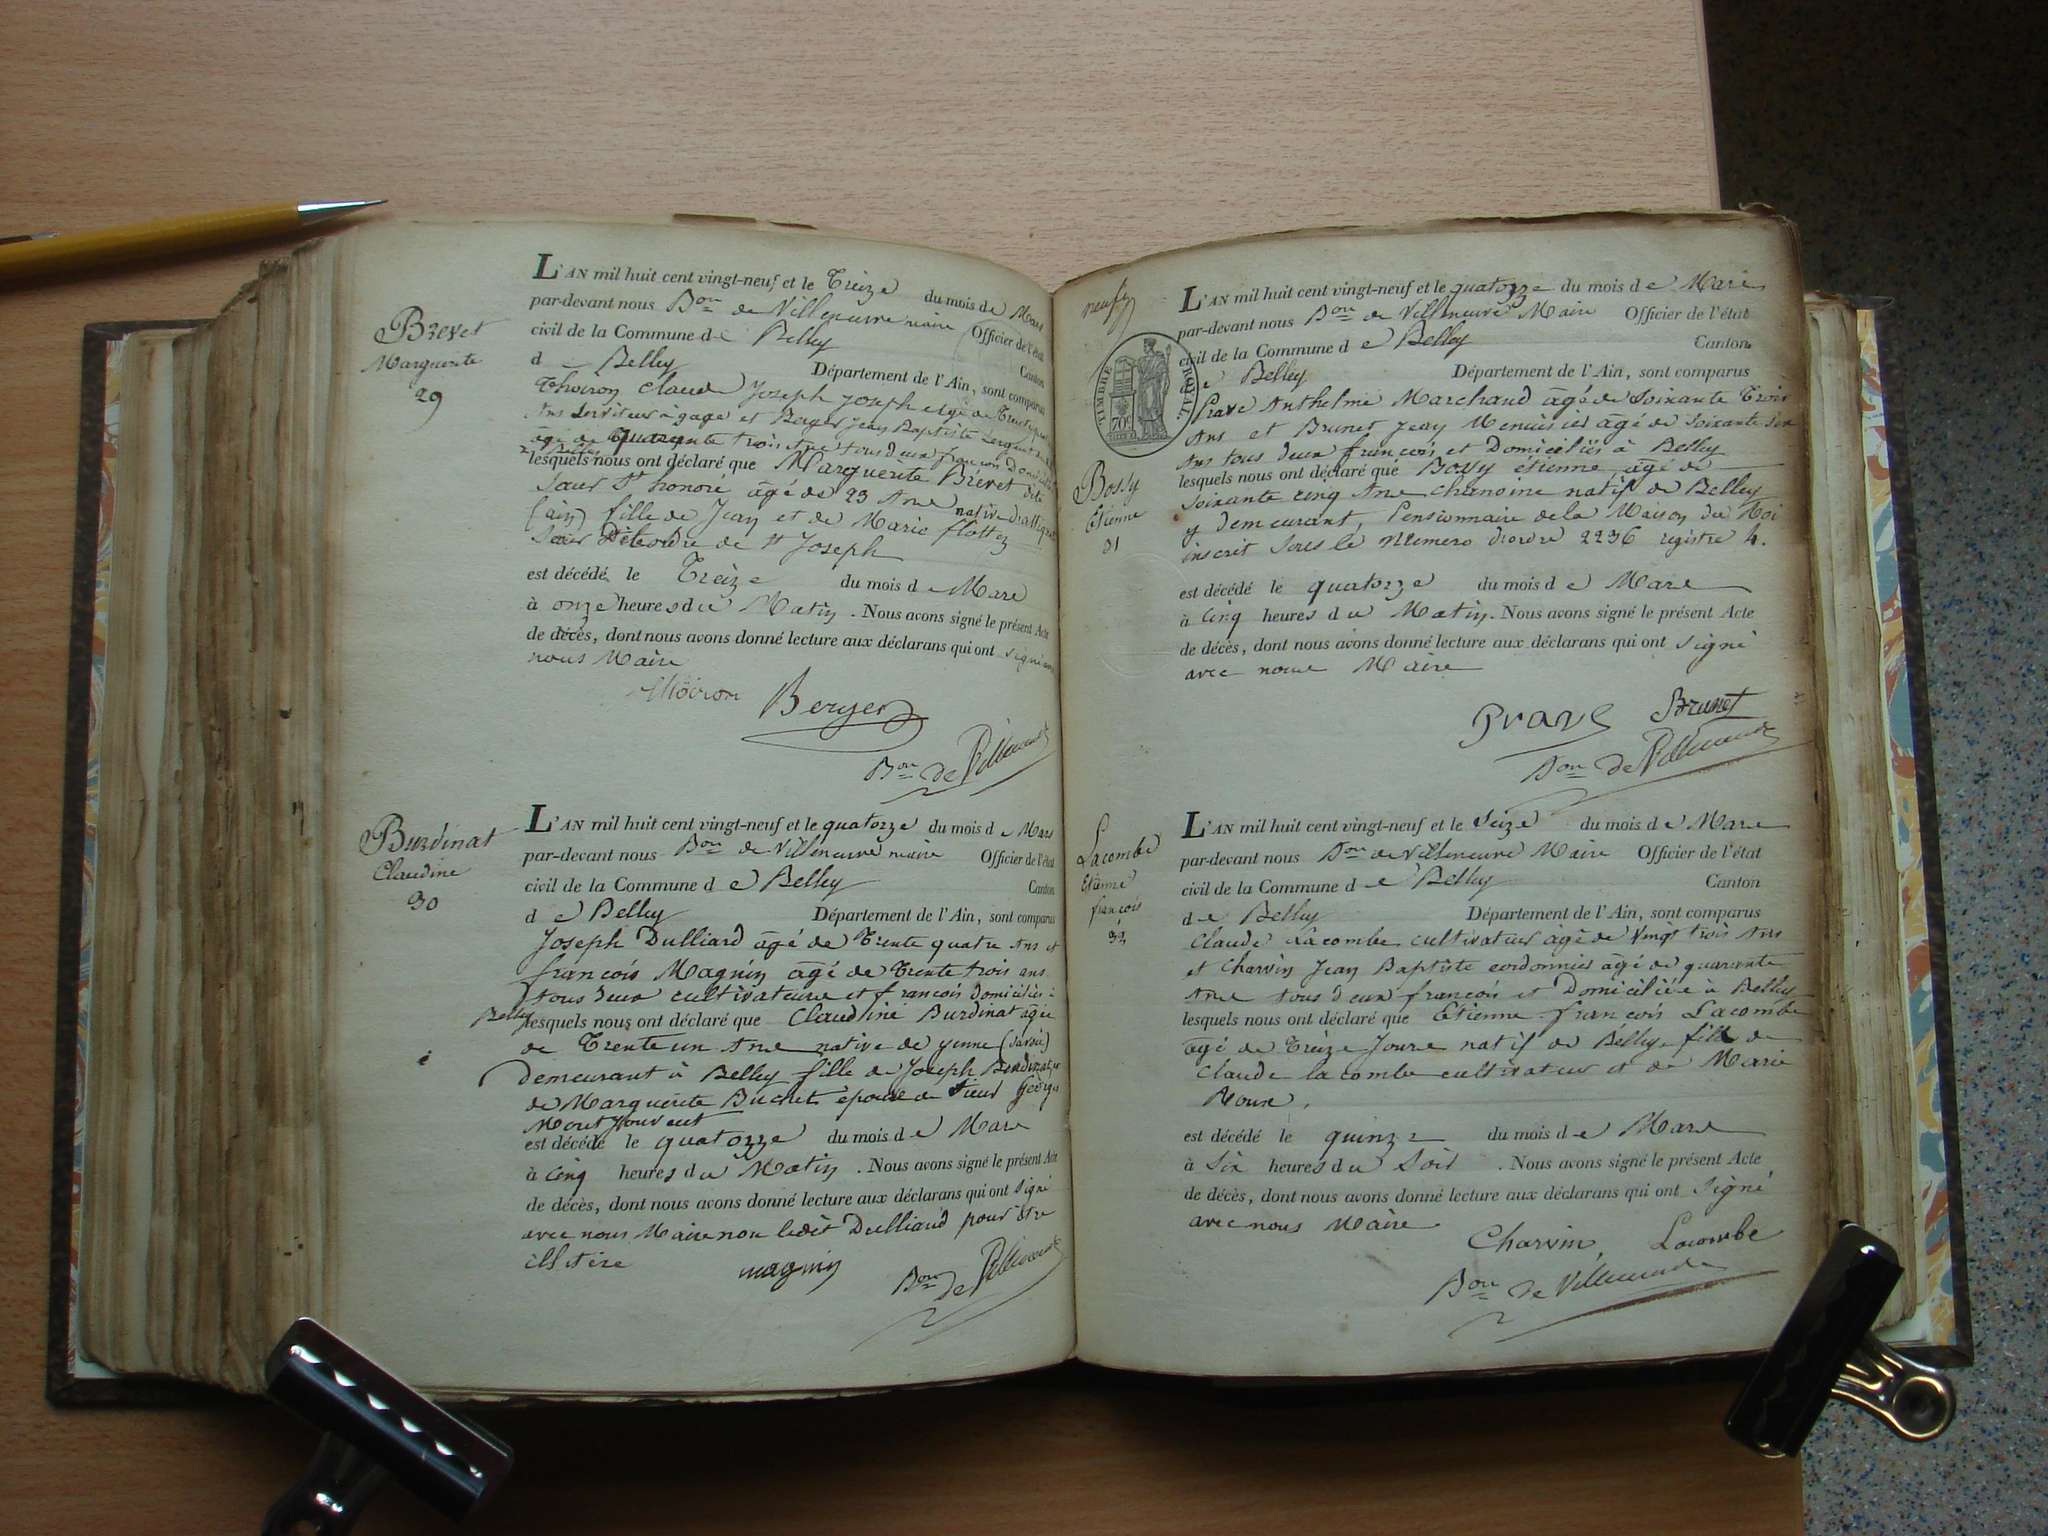 Brevet
Marguerite
29
L'AN mil huit cent vingt-neuf et le Treize du mois de Mars
par-devant nous Bon de Villeneuve maire Officier de l'état
civil de la Commune de Belley Canton
d Belley Département de l'Ain, sont comparus
Thoiron Claude Joseph Joseph âgé de
Ans Serviteur à gage et Berger Jean Baptiste
âge de Quarante trois Ans tous deux françois
à Belley
lesquels nous ont déclaré que Marguerite Brevet dite
Sœur St honoré, âgé de 23 Ans native
(ain) fille de Jean et de Marie flottez
Sœur De l'ordre de St Joseph
est décédé le Treize du mois de Mars
à onze heures du Matin. Nous avons signé le présent Acte
de décès, dont nous avons donné lecture aux déclarans qui ont signé avec
nous Maire
Thoiron Berger
Bon de Villeneuve
Burdinat
Claudine
30
L'AN mil huit cent vingt-neuf et le quatorze du mois de Mars
par-devant nous Bon de Villeneuve maire Officier de l'état
civil de la Commune de Belley Canton
de Belley Département de l'Ain, sont comparus
Joseph Dulliard âgé de Trente quatre Ans et
françois Magnin âgé de Trente trois ans
tous deux cultivateurs et françois Domiciliés à
Belley
lesquels nous ont déclaré que Claudine Burdinat agée
de Trente un Ans native de yenne (Savoie)
Demeurant à Belley fille de Joseph Burdinat et
de Marguerite Buchet épouse de Sieur George
Montjouvent
est décédé le quatorze du mois de Mars
à Cinq heures du Matin. Nous avons signé le présent Acte
de décès, dont nous avons donné lecture aux déclarans qui ont signé
avec nous Maire non ledit Dulliard pour être
illitéré
magnin Bon de Villeneuve
neuf
TIMBRE ROYAL.
70c
Bossy
Etienne
31
L'AN mil huit cent vingt-neuf et le quatorze du mois de Mars
par-devant nous Bon de Villeneuve Maire Officier de l'état
civil de la Commune de Belley Canton
de Belley Département de l'Ain, sont comparus
Prave Anthelme Marchand âgé de Soixante Trois
Ans et Brunet Jean Menuisier âgé de Soixante Six
Ans tous deux françois et Domiciliés à Belley
lesquels nous ont déclaré que Bossy étienne, âgé de
Soixante cinq Ans chanoine natif de Belley
y demeurant, Pensionnaire de la Maison du Roi
inscrit Sous le Numero d'ordre 2236 registre 4.
est décédé le quatorze du mois de Mars
à Cinq heures du Matin. Nous avons signé le présent Acte
de décès, dont nous avons donné lecture aux déclarans qui ont Signé
avec nous Maire
Prave Brunet
Bon de Villeneuve
Lacombe
Etienne
françois
32
L'AN mil huit cent vingt-neuf et le Seize du mois de Mars
par-devant nous Bon de Villeneuve Maire Officier de l'état
civil de la Commune de Belley Canton
de Belley Département de l'Ain, sont comparus
Claude Lacombe cultivateur âgé de Vingt trois Ans
et Charvin Jean Baptiste cordonnier âgé de quarante
Ans tous deux françois et Domiciliés à Belley
lesquels nous ont déclaré que Etienne françois Lacombe
âgé de Treize Jours natif de Belley fils de
Claude lacombe cultivateur et de Marie
Roux,
est décédé le quinze du mois de Mars
à Six heures du Soir. Nous avons signé le présent Acte
de décès, dont nous avons donné lecture aux déclarans qui ont Signé
avec nous Maire
Charvin, Lacombe
Bon de Villeneuve